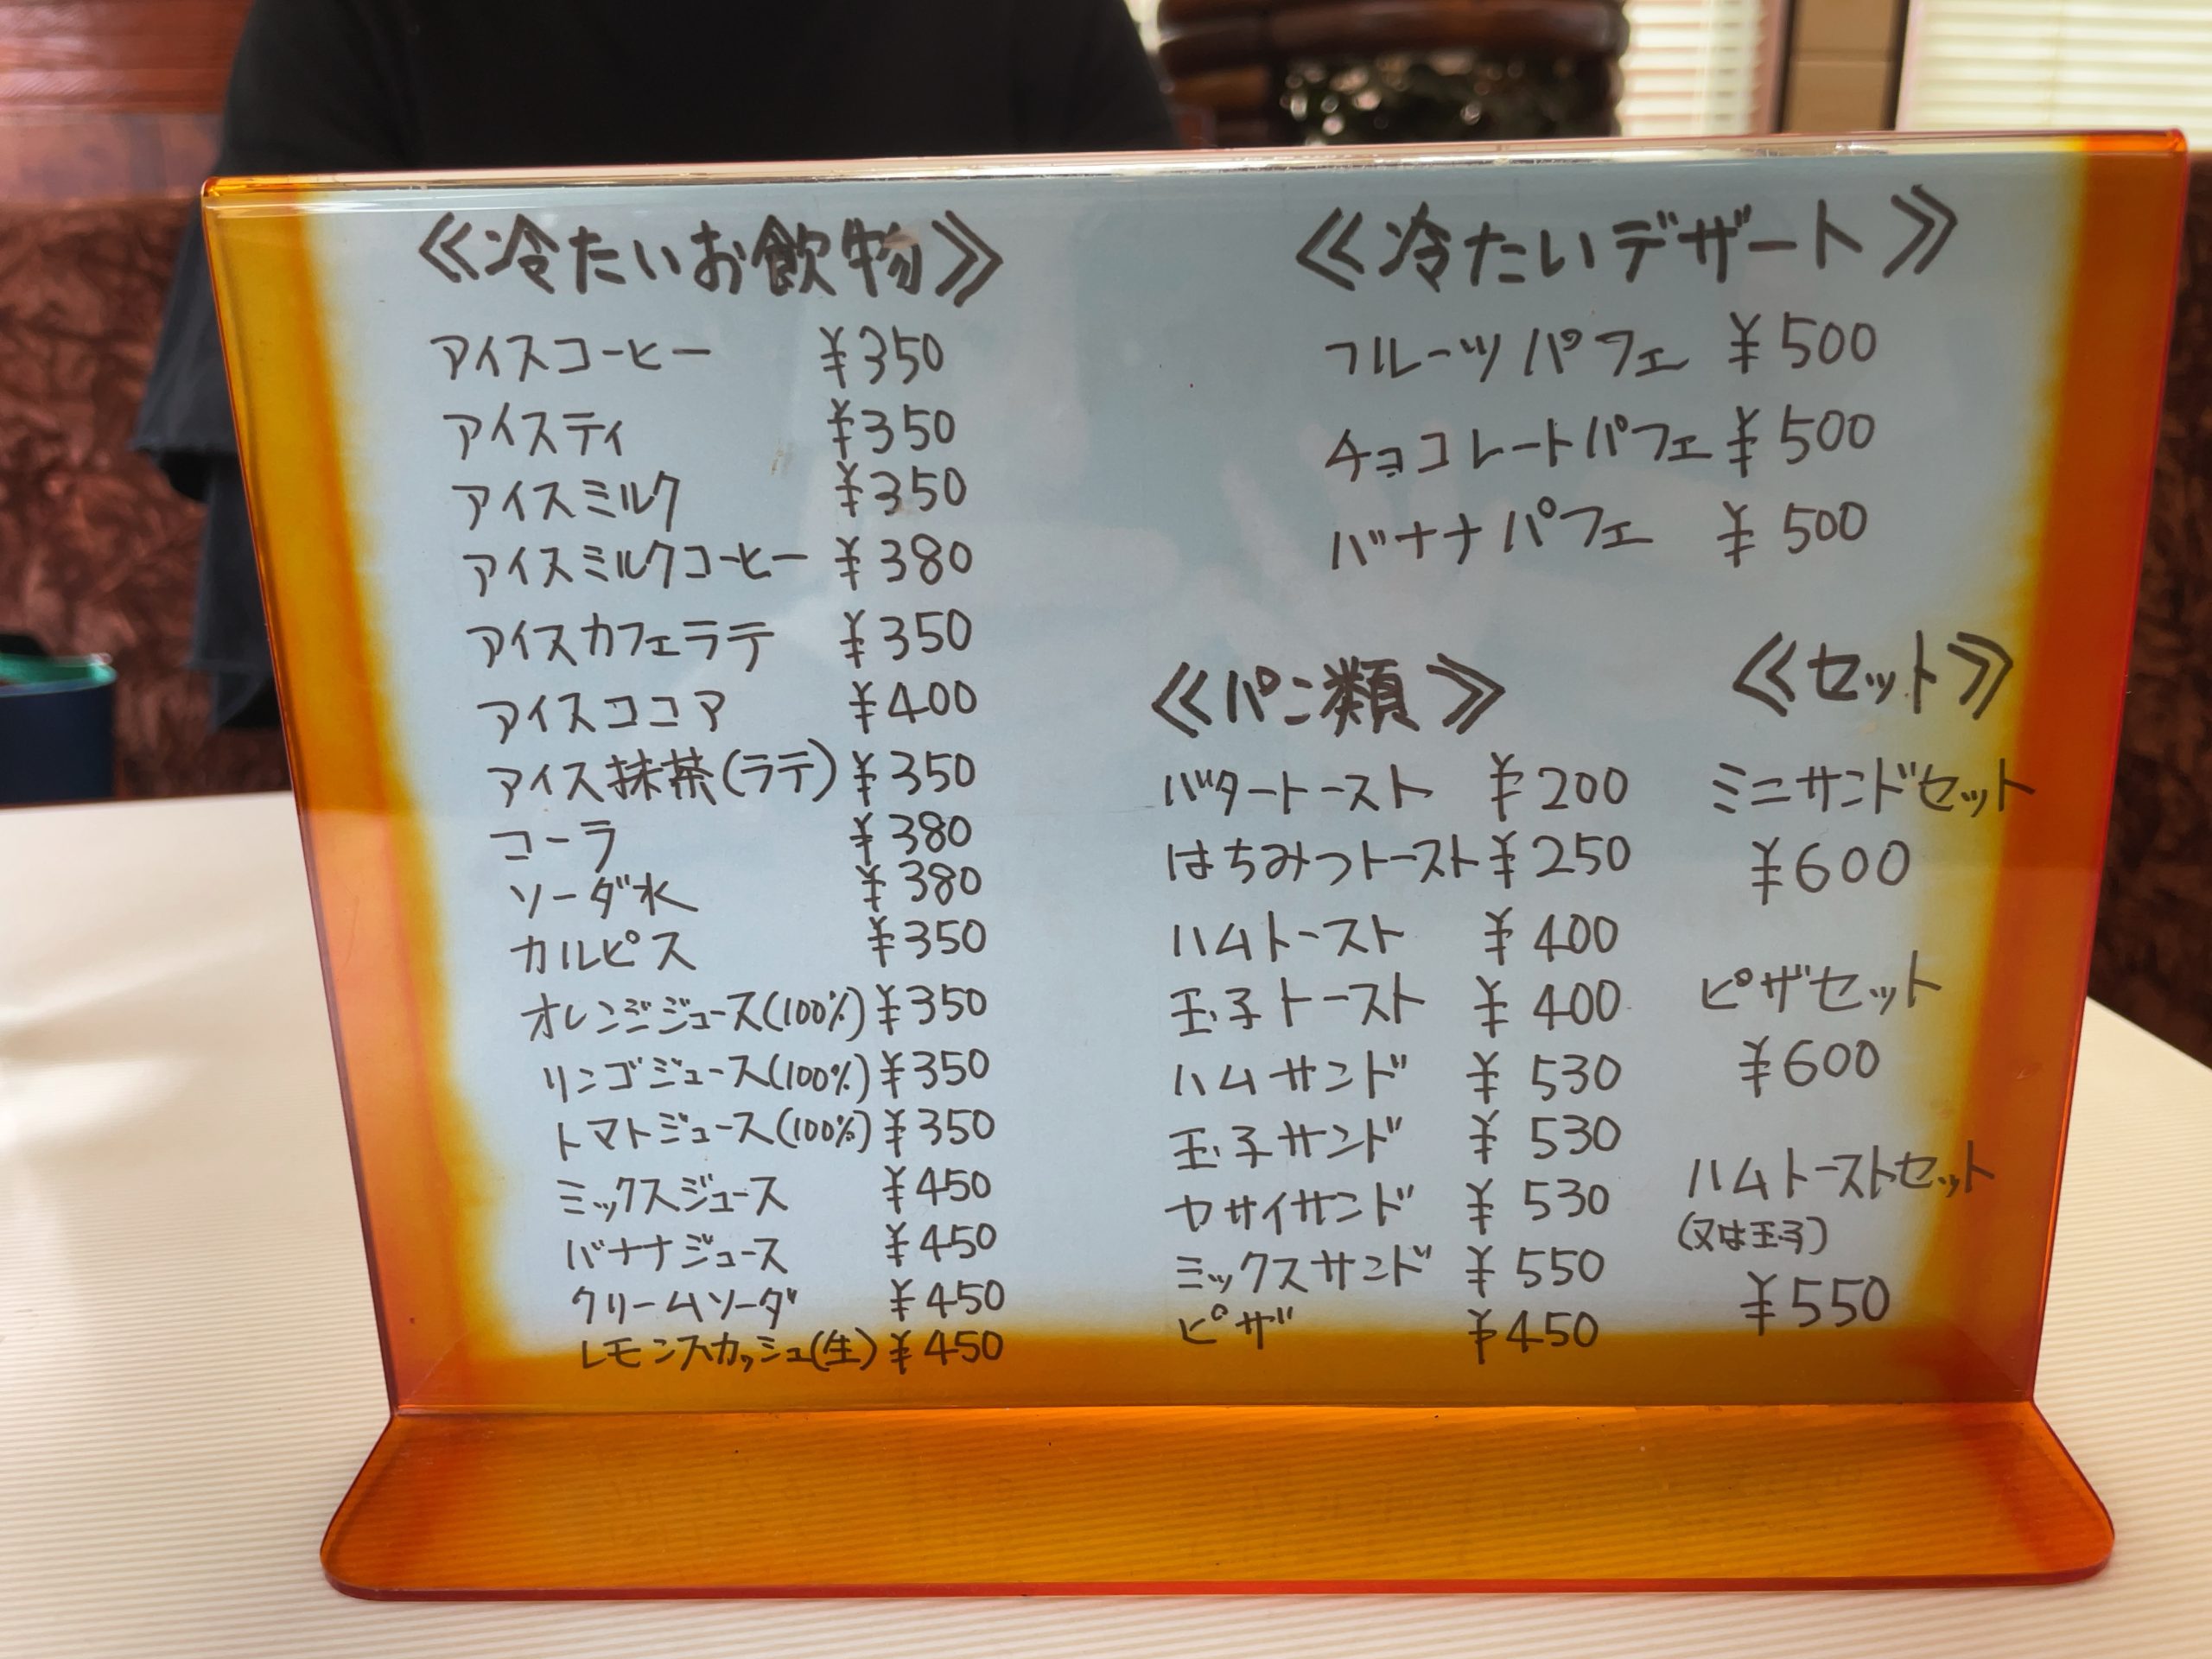 ≪冷たいお飲物≫
アイスコーヒー ¥350
アイスティ ¥350
アイスミルク ¥350
アイスミルクコーヒー ¥380
アイスカフェラテ ¥350
アイスココア ¥400
アイス抹茶(ラテ) ¥350
コーラ ¥380
ソーダ水 ¥380
カルピス ¥350
オレンジジュース(100%) ¥350
リンゴジュース(100%) ¥350
トマトジュース(100%) ¥350
ミックスジュース ¥450
バナナジュース ¥450
クリームソーダ ¥450
レモンスカッシュ(生) ¥450
≪冷たいデザート≫
フルーツパフェ ¥500
チョコレートパフェ ¥500
バナナパフェ ¥500
≪パン類≫
バタートースト ¥200
はちみつトースト ¥250
ハムトースト ¥400
玉子トースト ¥400
ハムサンド ¥530
玉子サンド ¥530
ヤサイサンド ¥530
ミックスサンド ¥550
ピザ ¥450
≪セット≫
ミニサンドセット
¥600
ピザセット
¥600
ハムトーストセット
(又は玉子)
¥550